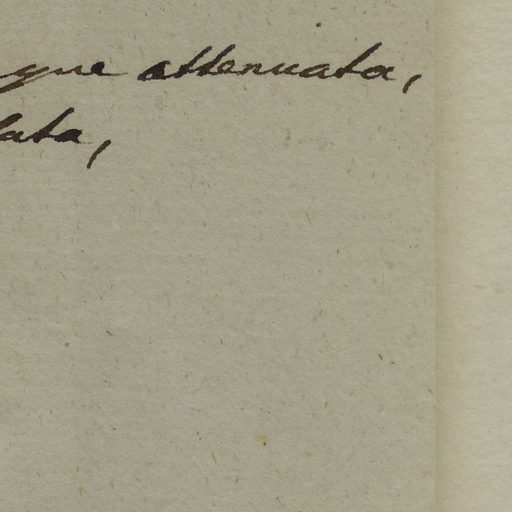 que attenuata,
lata,